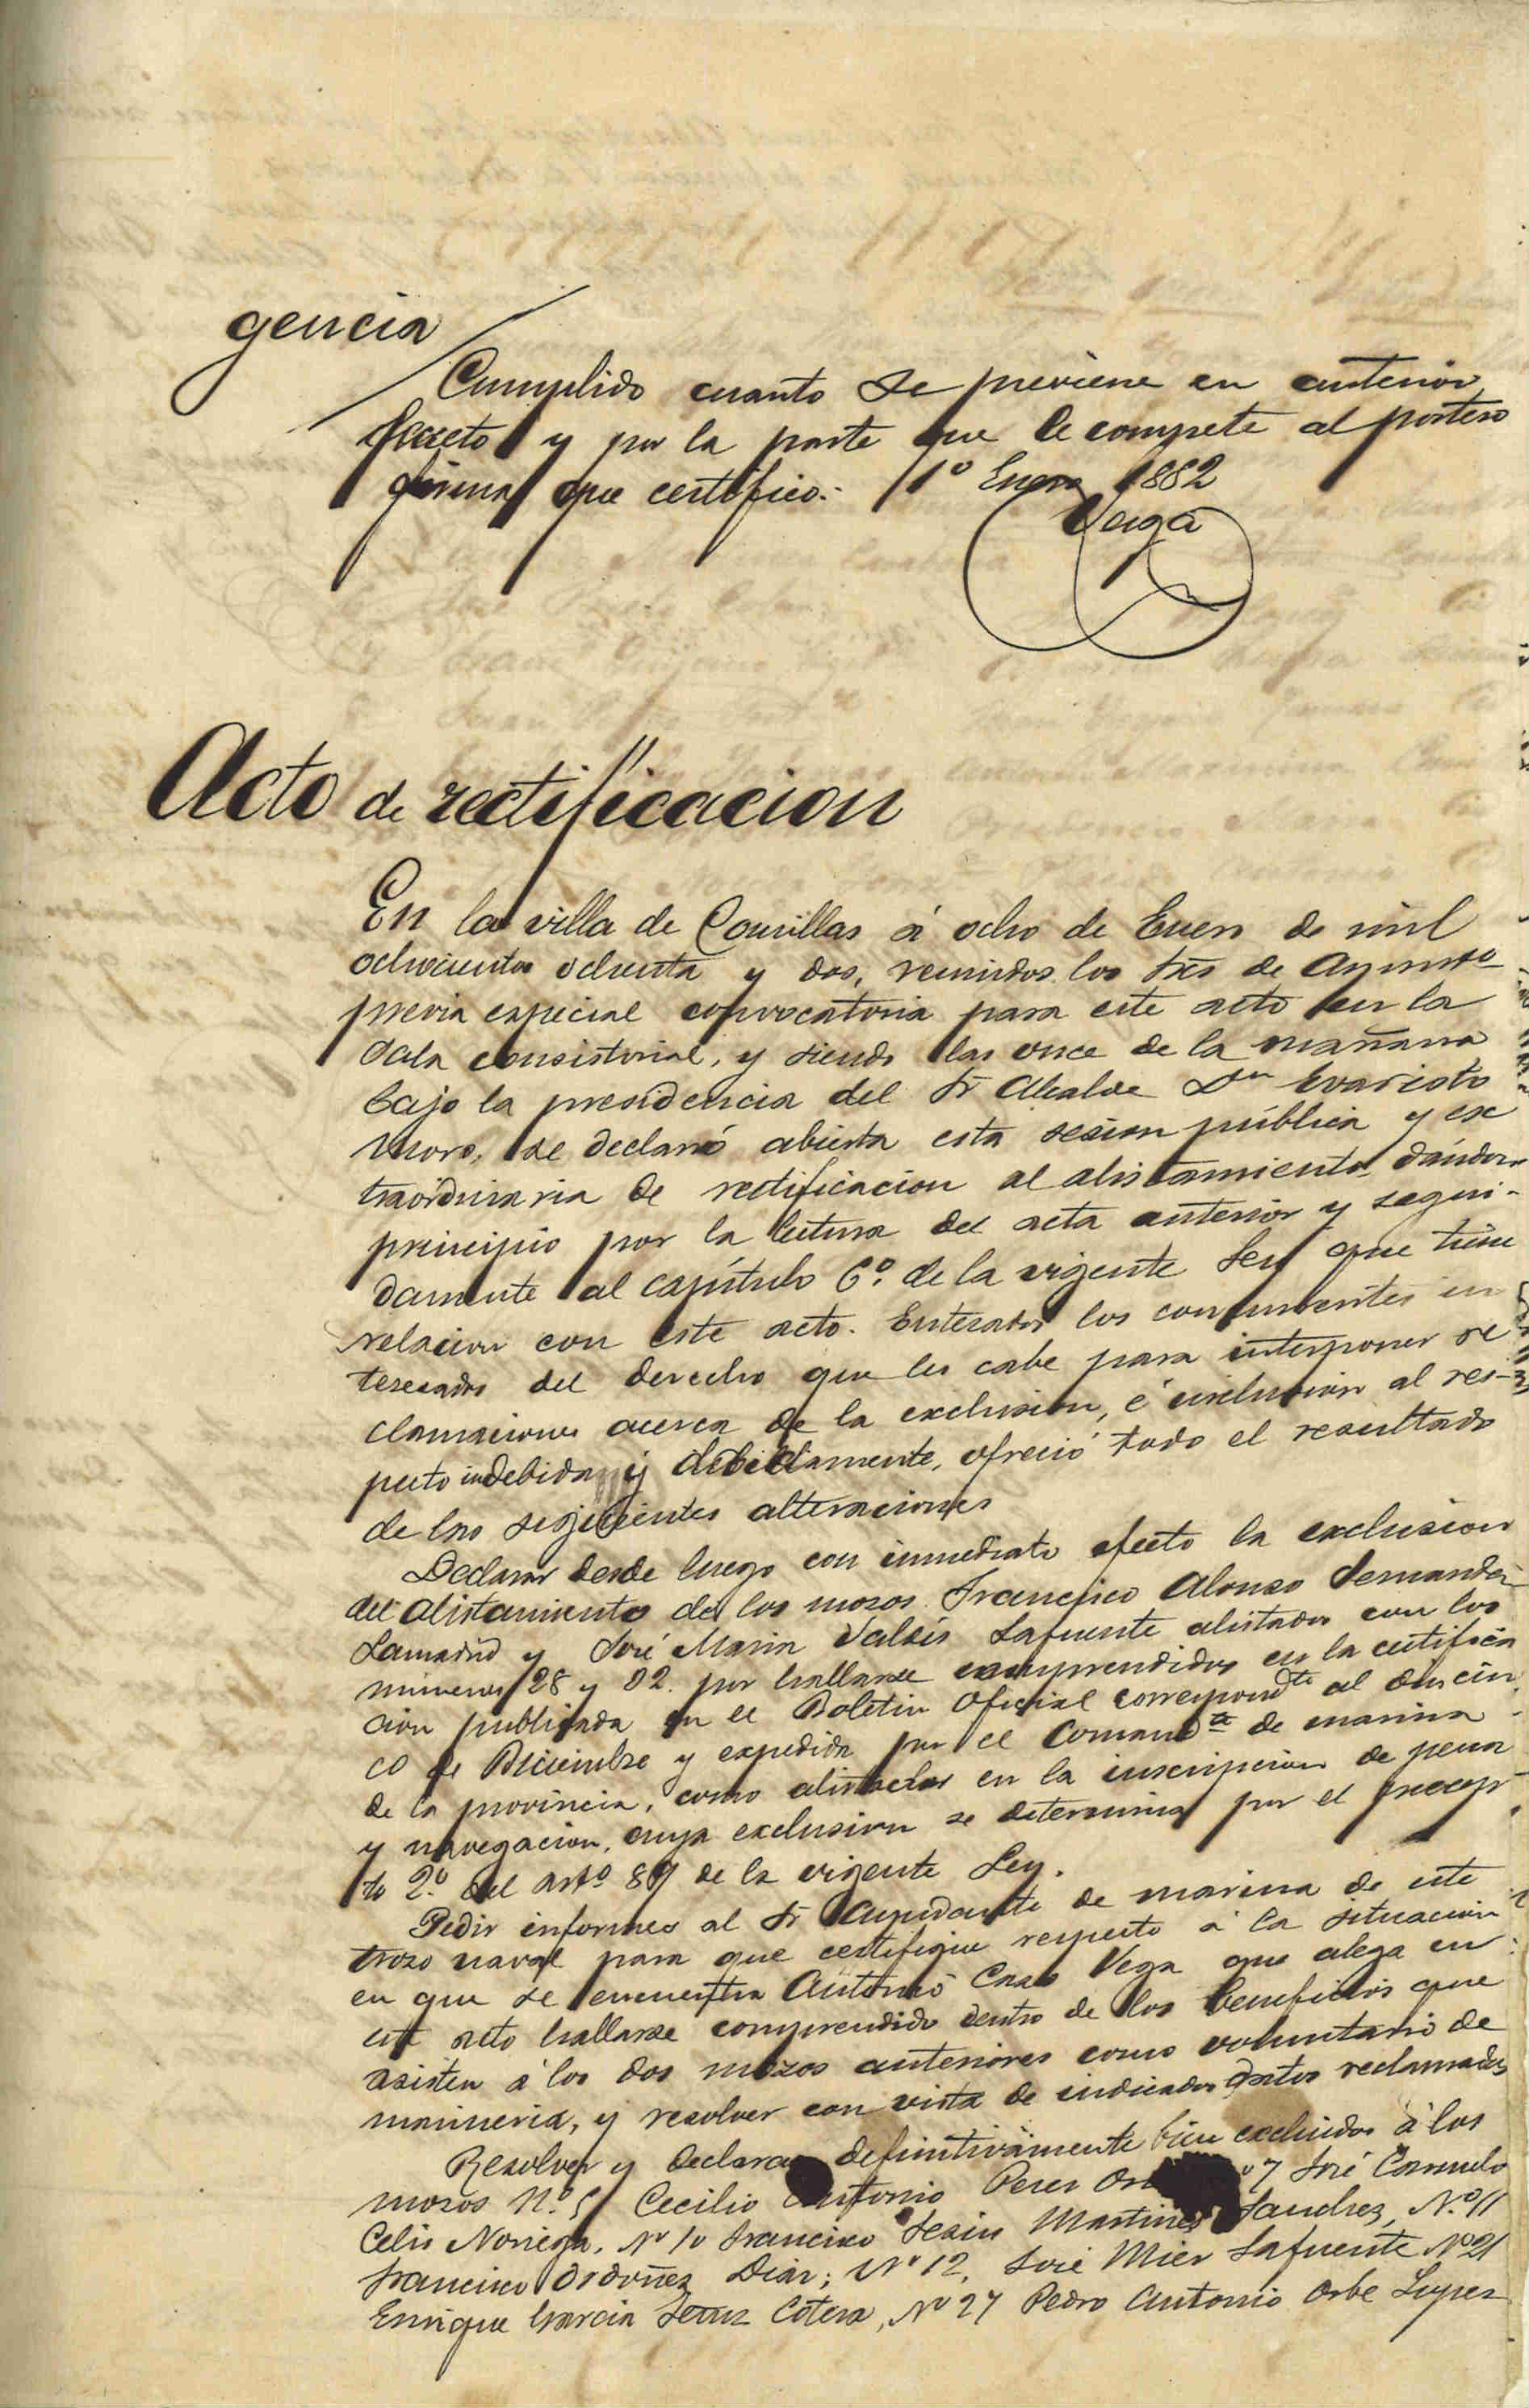 gencia
Cumplido cuanto se previene en anterior
decreto y por la parte que le compete al portero
firma que certifico. 1º Enero 1882
Veiga
Acto de rectificacion
En la villa de Comillas á ocho de Enero de mil
ochocientos ochenta y dos, reunidos los Sres de Ayuntº
previa especial convocatoria para este acto en la
Sala consistorial, y siendo las once de la mañana
bajo la presidencia del Sr Alcalde Dn Evaristo
Moro, se declaró abierta esta sesion pública y ex
traordinaria de rectificacion al alistamiento, dándose
principio por la lectura del acta anterior y segui-
damente al capítulo 6º de la vigente Ley que tiene
relacion con este acto. Enterados los concurrentes in
teresados del derecho que les cabe para interponer re
clamaciones acerca de la exclusion, é inclusion al res-
pecto indebida y debidamente, ofreció todo el resultado
de las siguientes alteraciones
Declarar desde luego con inmediato efecto la exclusion
del alistamiento de los mozos Francisco Alonso Fernandez
Lamadrid y José Maria Valdés Lafuente alistados con los
numeros 28 y 32 por hallarse comprendidos en la certifica
cion publicada en el Boletin Oficial correspondte al dia cin
co de Diciembre y expedida por el Comandte de marina
de la provincia, como alistados en la inscripcion de pesca
y navegacion, cuya exclusion se determina por el precep
to 2º del artº 89 de la vigente Ley.
Pedir informes al Sr Ayudante de marina de este
trozo naval para que certifique respecto á la situacion
en que se encuentra Antonio Caso Vega que alega en
este acto hallarse comprendido dentro de los beneficios que
asisten á los dos mozos anteriores como voluntario de
marineria, y resolver con vista de indicados datos reclamados
Resolver y declarar definitivamente bien excluidos á los
mozos Nº 5 Cecilio Antonio Perez º 7 José Consuelo
Celis Noriega, Nº 10 Francisco Jesus Martinez Sanchez, Nº 11
Francisco Ordoñez Diaz; Nº 12, José Mier Lafuente Nº 21
Enrique Garcia Cotera, Nº 27 Pedro Antonio Orbe Lopez